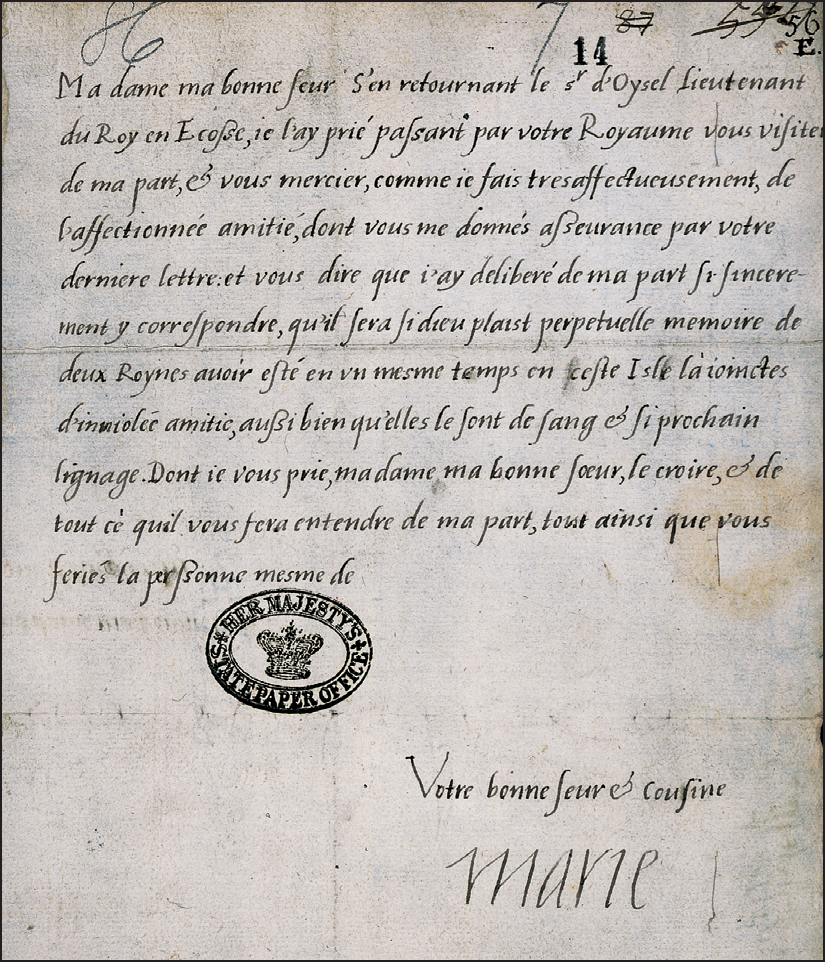 86 7 87 56
14 E.
Ma dame ma bonne ſeur S'en retournant le sʳ d'Oysel Lieutenant
du Roy en Ecoſſe, ie l'ay prié paſsant par votre Royaume vous viſiter
de ma part, & vous mercier, comme ie fais tresaffectueusement, de
l'affectionnéé amitié, dont vous me donnés aſseurance par votre
derniere lettre: et vous dire que i'ay deliberé de ma part ſi ſincere-
ment y correſpondre, qu'il ſera ſi dieu plaist perpetuelle memoire de
deux Roynes auoir eſté en vn mesme temps en ceſte Isle là ioinctes
d'inuioléé amitie, auſsi bien qu'elles le ſont de ſang & ſi prochain
lignage. Dont ie vous prie, ma dame ma bonne ſœur, le croire, & de
tout cè quil vous fera entendre de ma part, tout ainsi que vous
feriés la perſonne mesme de
HER MAJESTY'S
STATE PAPER OFFICE
Votre bonne ſeur & couſine
Marie